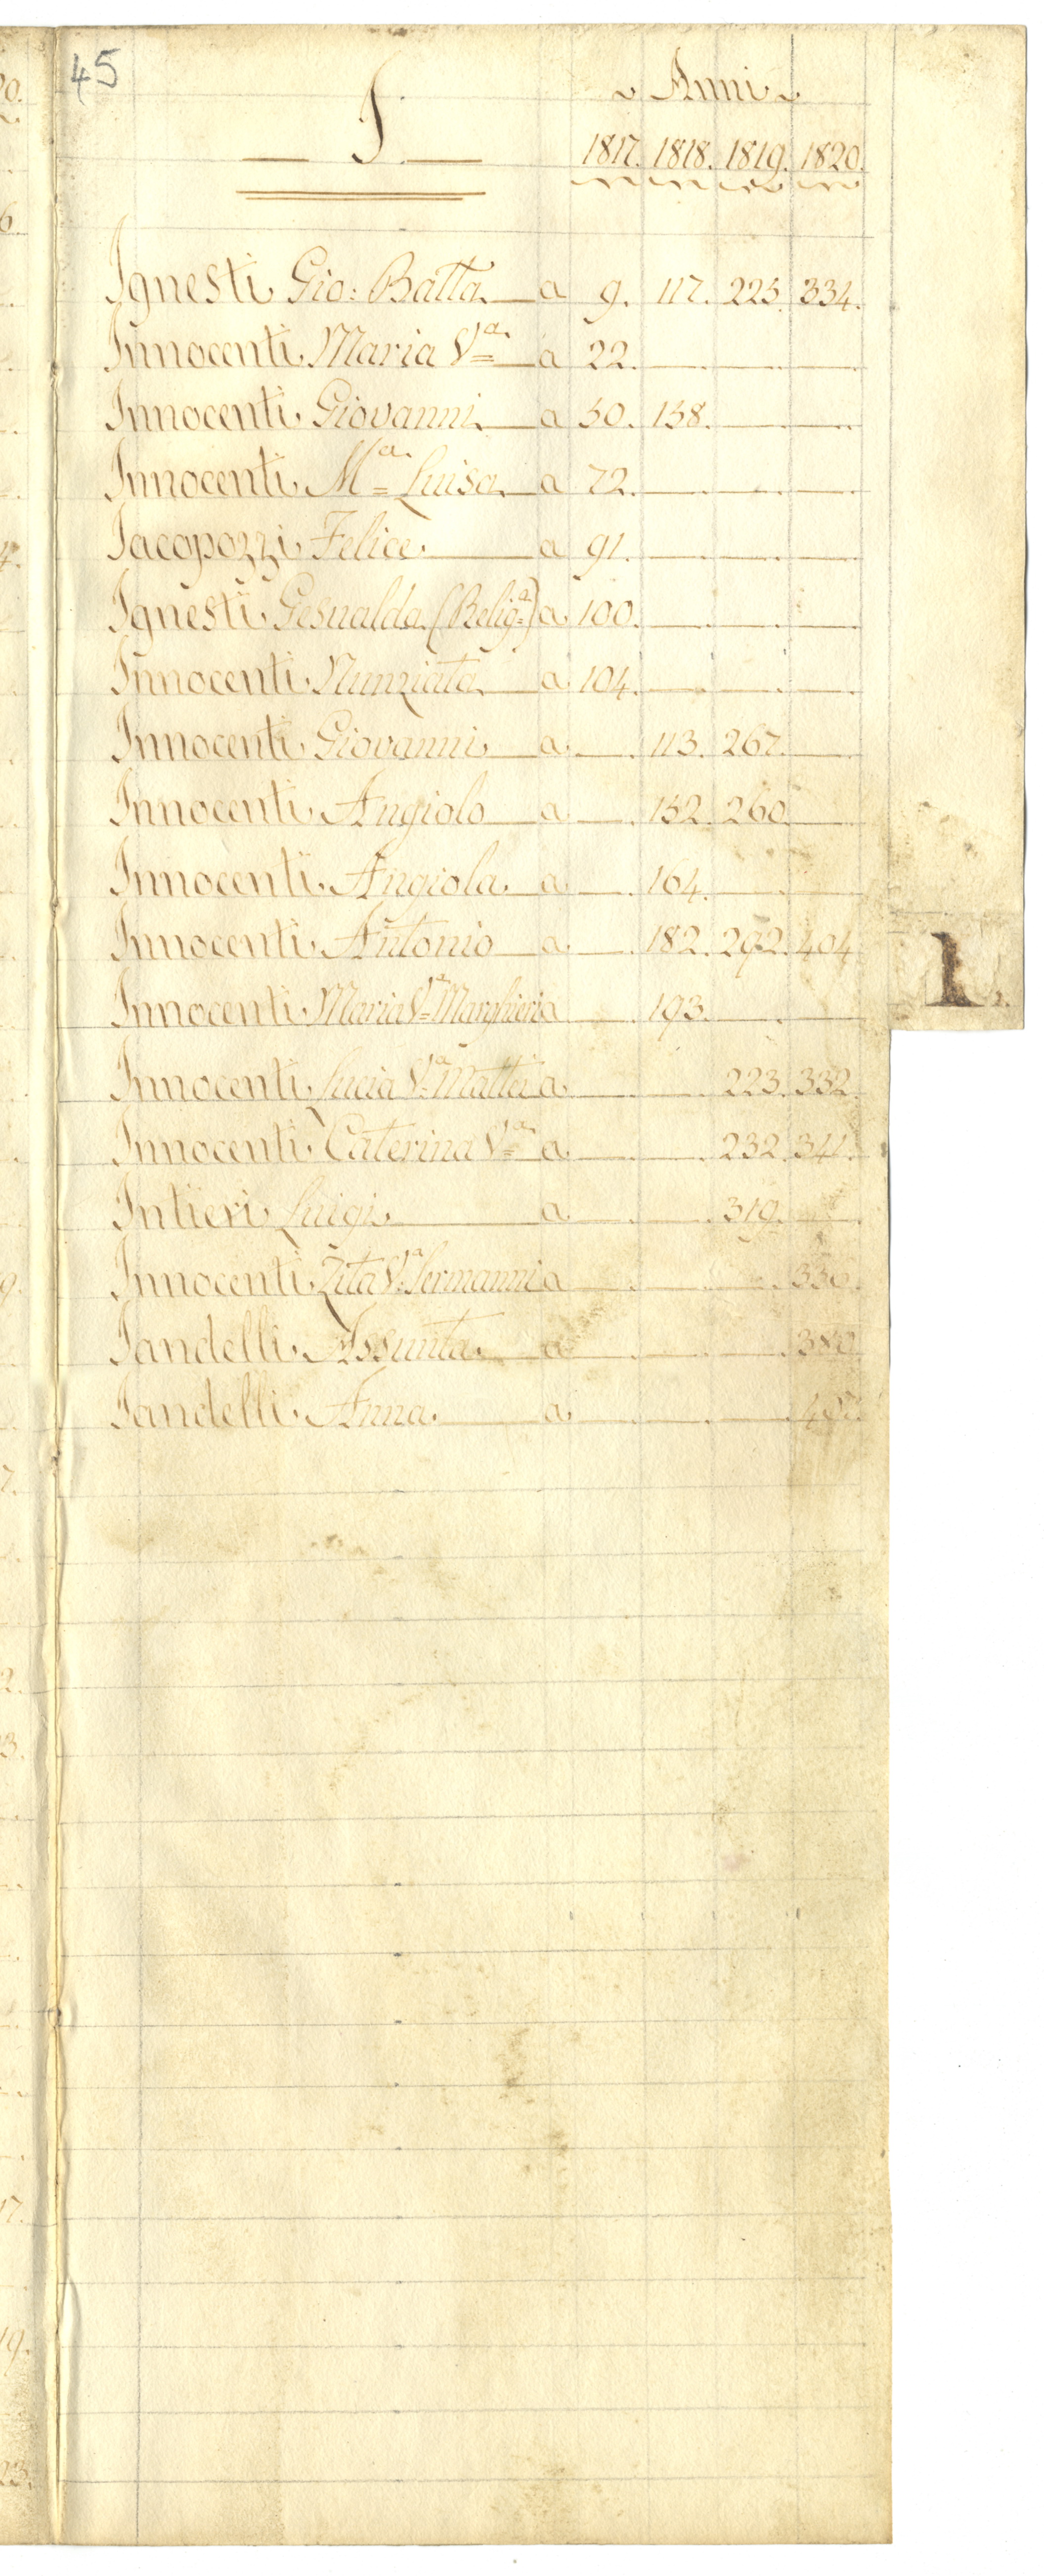 45
I.
Anni
1817. 1818. 1819. 1820.
Ignesti Gio: Batta. a 9. 117. 225. 334.
Innocenti Maria Vᵃ a 22.
Innocenti Giovanni a 50. 158.
Innocenti Mᵃ Luisa a 72.
Jacopozzi Felice a 91.
Ignesti Gesualda (Religᵃ) a 100.
Innocenti Nunziata a 104.
Innocenti Giovanni a 113. 267.
Innocenti Angiolo a 152. 260.
Innocenti Angiola a 164.
Innocenti Antonio a 182. 292. 404
Innocenti Maria Vᵃ Margheri a 193.
Innocenti Lucia Vᵃ Mattei a 223. 332.
Innocenti Caterina Vᵃ a 232. 341.
Intieri Luigi a 319.
Innocenti Zita Vᵃ a 330.
Jandelli Assunta a
Jandelli Anna a
I.